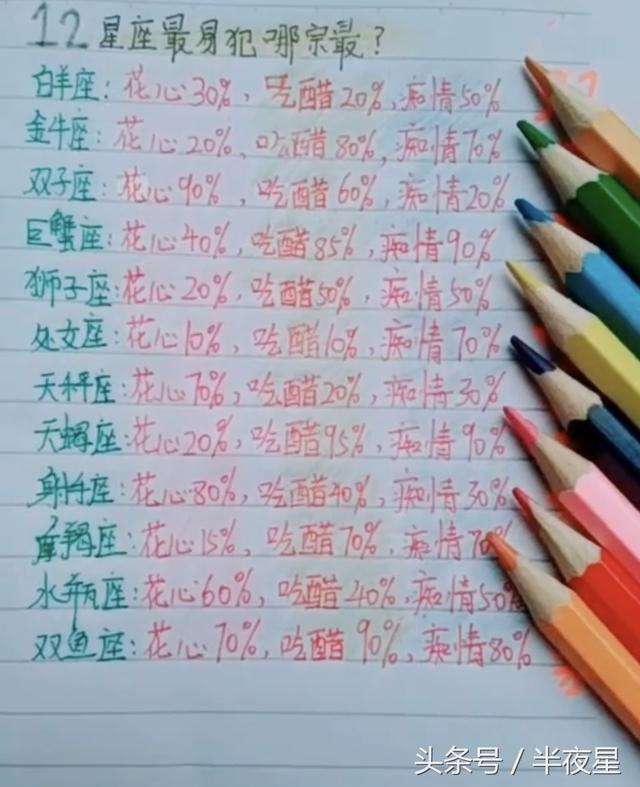 12星座最易犯哪宗最?
白羊座:花心30%,吃醋20%,痴情50%
金牛座:花心20%,吃醋80%,痴情70%
双子座:花心90%,吃醋60%,痴情20%
巨蟹座:花心40%,吃醋85%,痴情90%
狮子座:花心20%,吃醋50%,痴情50%
处女座:花心10%,吃醋10%,痴情70%
天秤座:花心70%,吃醋20%,痴情30%
天蝎座:花心20%,吃醋95%,痴情90%
射手座:花心80%,吃醋40%,痴情30%
摩羯座:花心15%,吃醋70%,痴情70%
水瓶座:花心60%,吃醋40%,痴情50%
双鱼座:花心70%,吃醋90%,痴情80%
头条号/半夜星